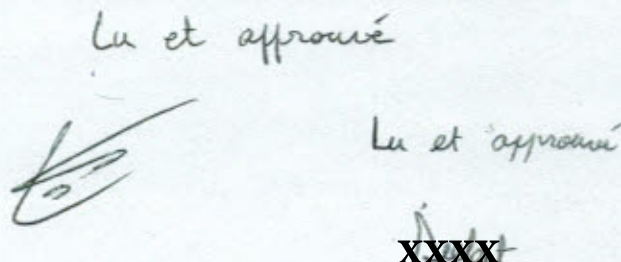 Lu et approuvé
Lu et approuvé
xxxx